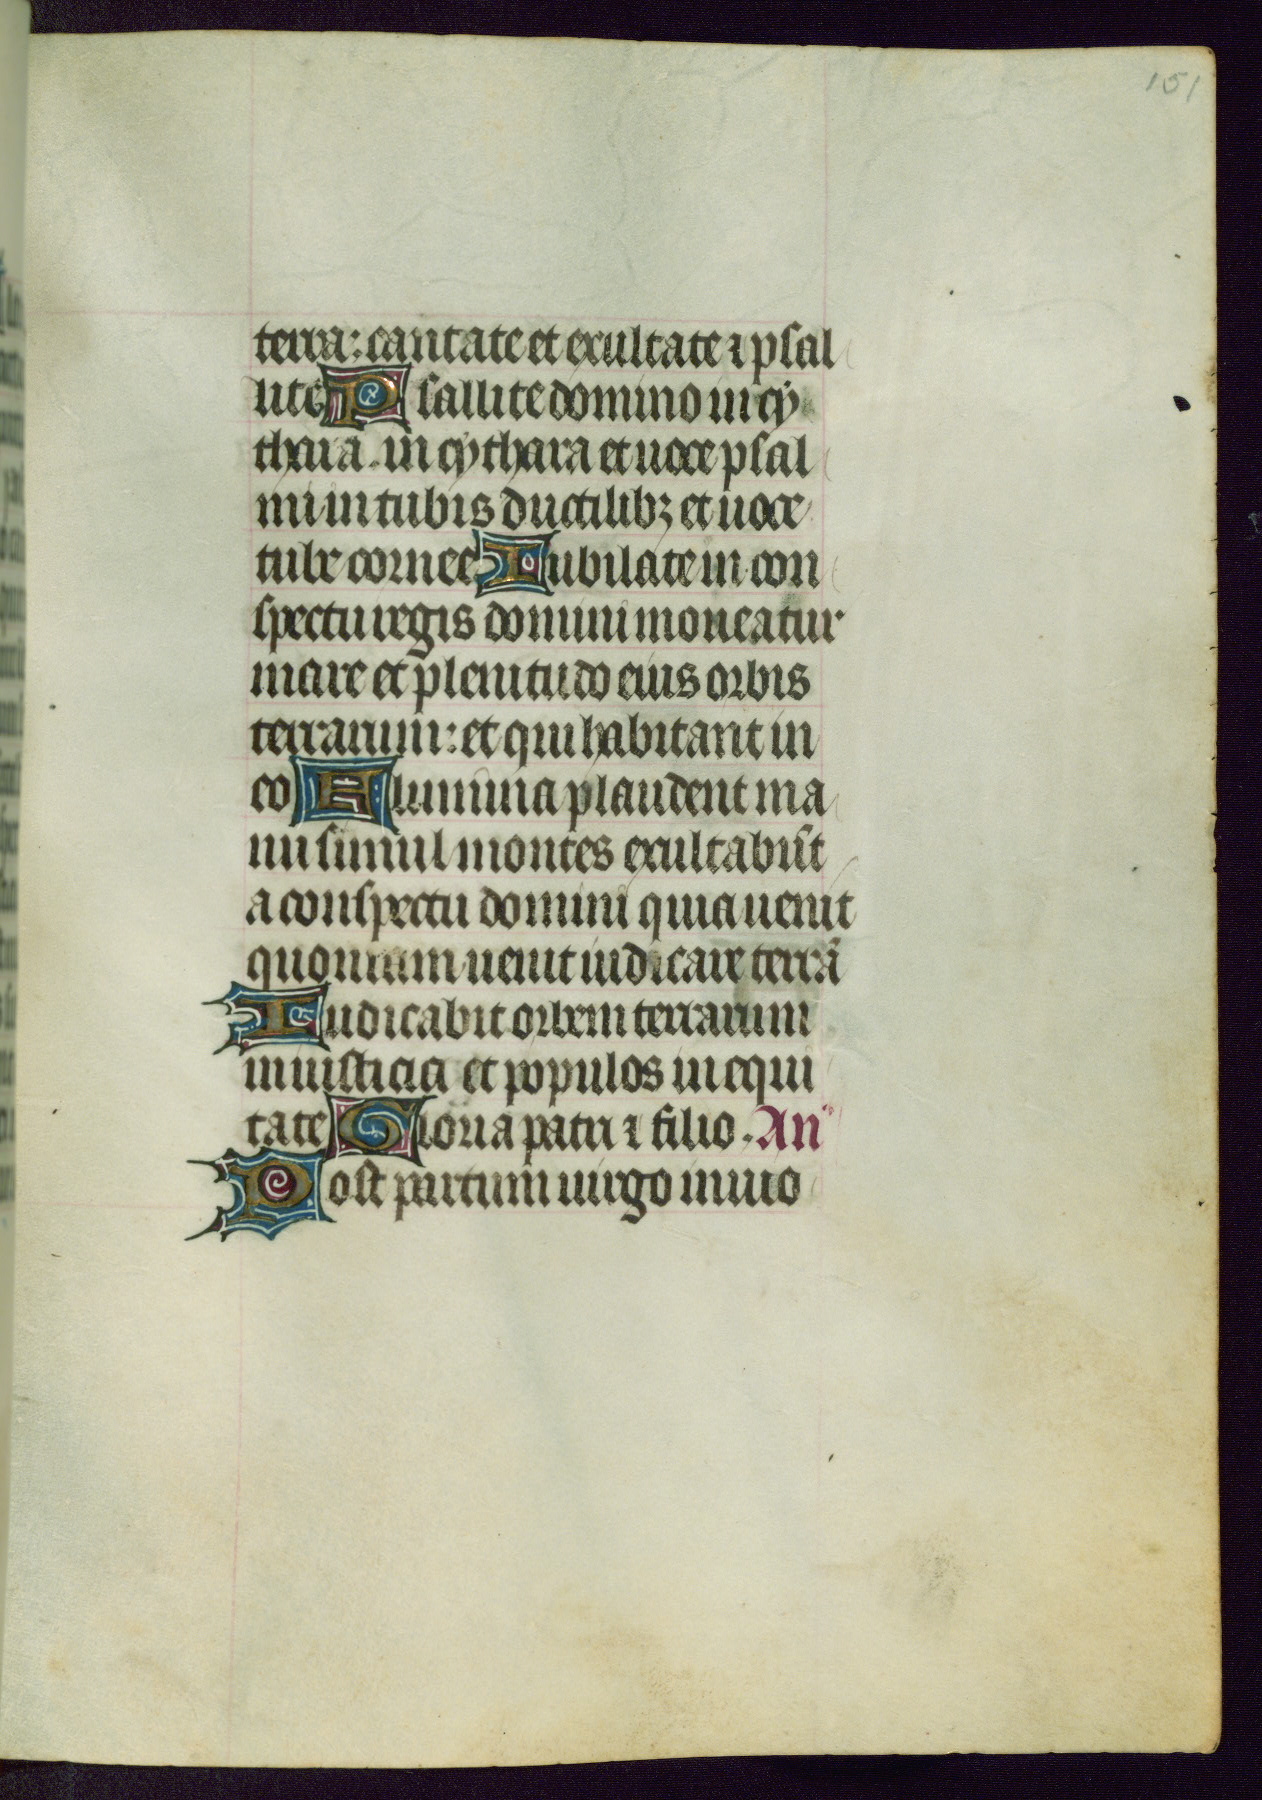 151
terra: cantate et exultate ⁊ psal
lite Psallite domino in cy
thara. in cythara et uoce psal
mi in tubis ductilibꝫ et uoce
tube cornee Iubilate in con
spectu regis domini moueatur
mare et plenitudo eius orbis
terrarum: et qui habitant in
eo Flumina plaudent ma
nu simul montes exultabūt
a conspectu domini quia uenit
quoniam uenit iudicare terrā
Iudicabit orbem terrarum
in iusticia et populos in equi
tate Gloria patri ⁊ filio. An
Post partum uirgo inuio